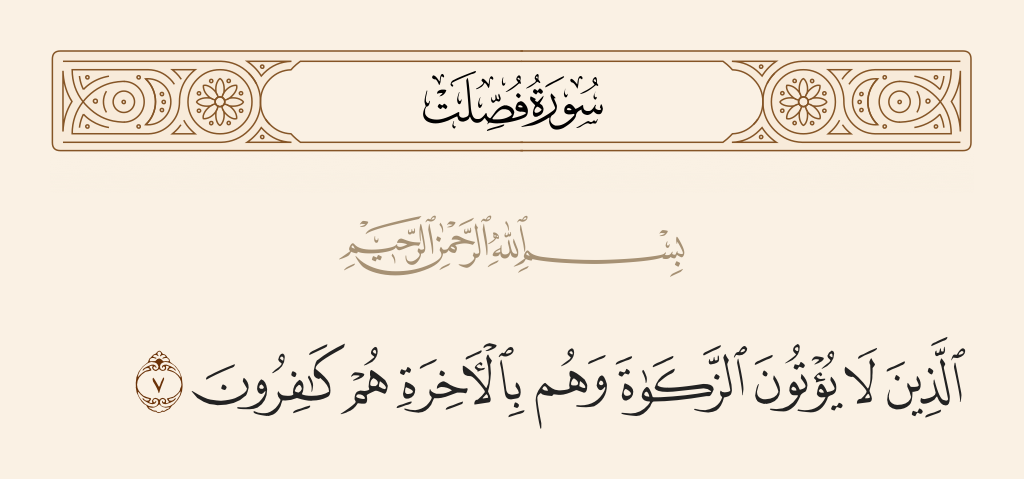 سُورَةُ فُصِّلَتْ
بِسْمِ ٱللَّهِ ٱلرَّحْمَٰنِ ٱلرَّحِيمِ
ٱلَّذِينَ لَا يُؤْتُونَ ٱلزَّكَوٰةَ وَهُم بِٱلْأَخِرَةِ هُمْ كَٰفِرُونَ ٧